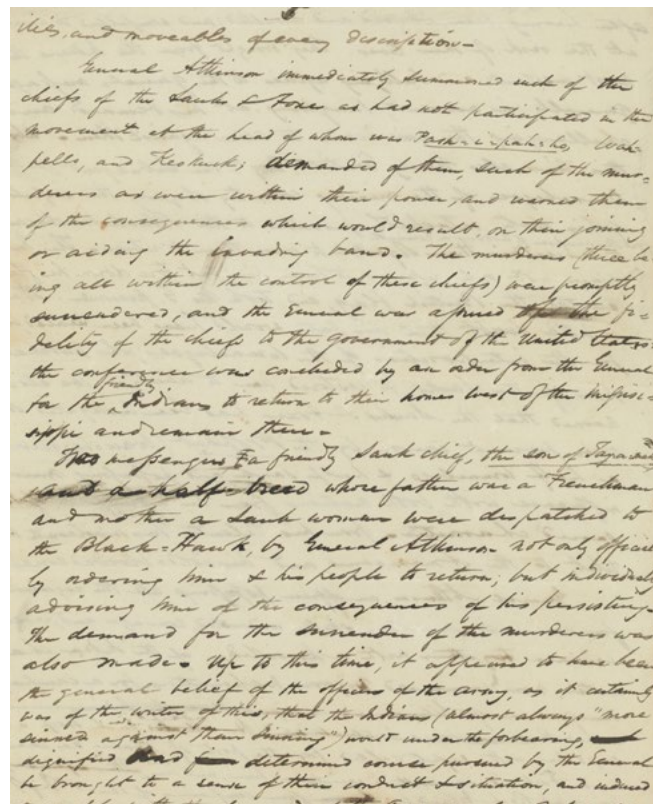 ilies, and moveables of every discription—
General Atkinson immediately summoned such of the
chiefs of the Sauks & Foxes as had not participated in the
movement at the head of whom was Pash-i-pa-ho, Wap-
pells, and Keokuck; demanded of them, such of the mur-
derers as were within their power, and warned them
of the consequences which would result, on their joining
or aiding the invading band. The murderers (three be
ing all within the control of these chiefs) were promptly
surrendered, and the General was assured of the fi-
delity of the chiefs to the government of the United States:
the conference was concluded by an order from the General
for the friendly Indians to return to their homes west of the Missis-
sippi and remain there—
Two messengers a friendly Sauk chief, the son of
and a half breed whose father was a Frenchman
and mother a Sauk woman were despatched to
the Black-Hawk, by General Atkinson not only officially
by ordering him & his people to return; but individually
advising him of the consequences of his persisting—
The demand for the surrender of the murderers was
also made. Up to this time, it appeared to have been
the general belief of the officers of the army, as it certainly
was of the writer of this, that the Indians (almost always "more
sinned against than sinning") would under the forbearing,
dignified and determined course pursued by the General
be brought to a sense of their conduct & situation, and induced